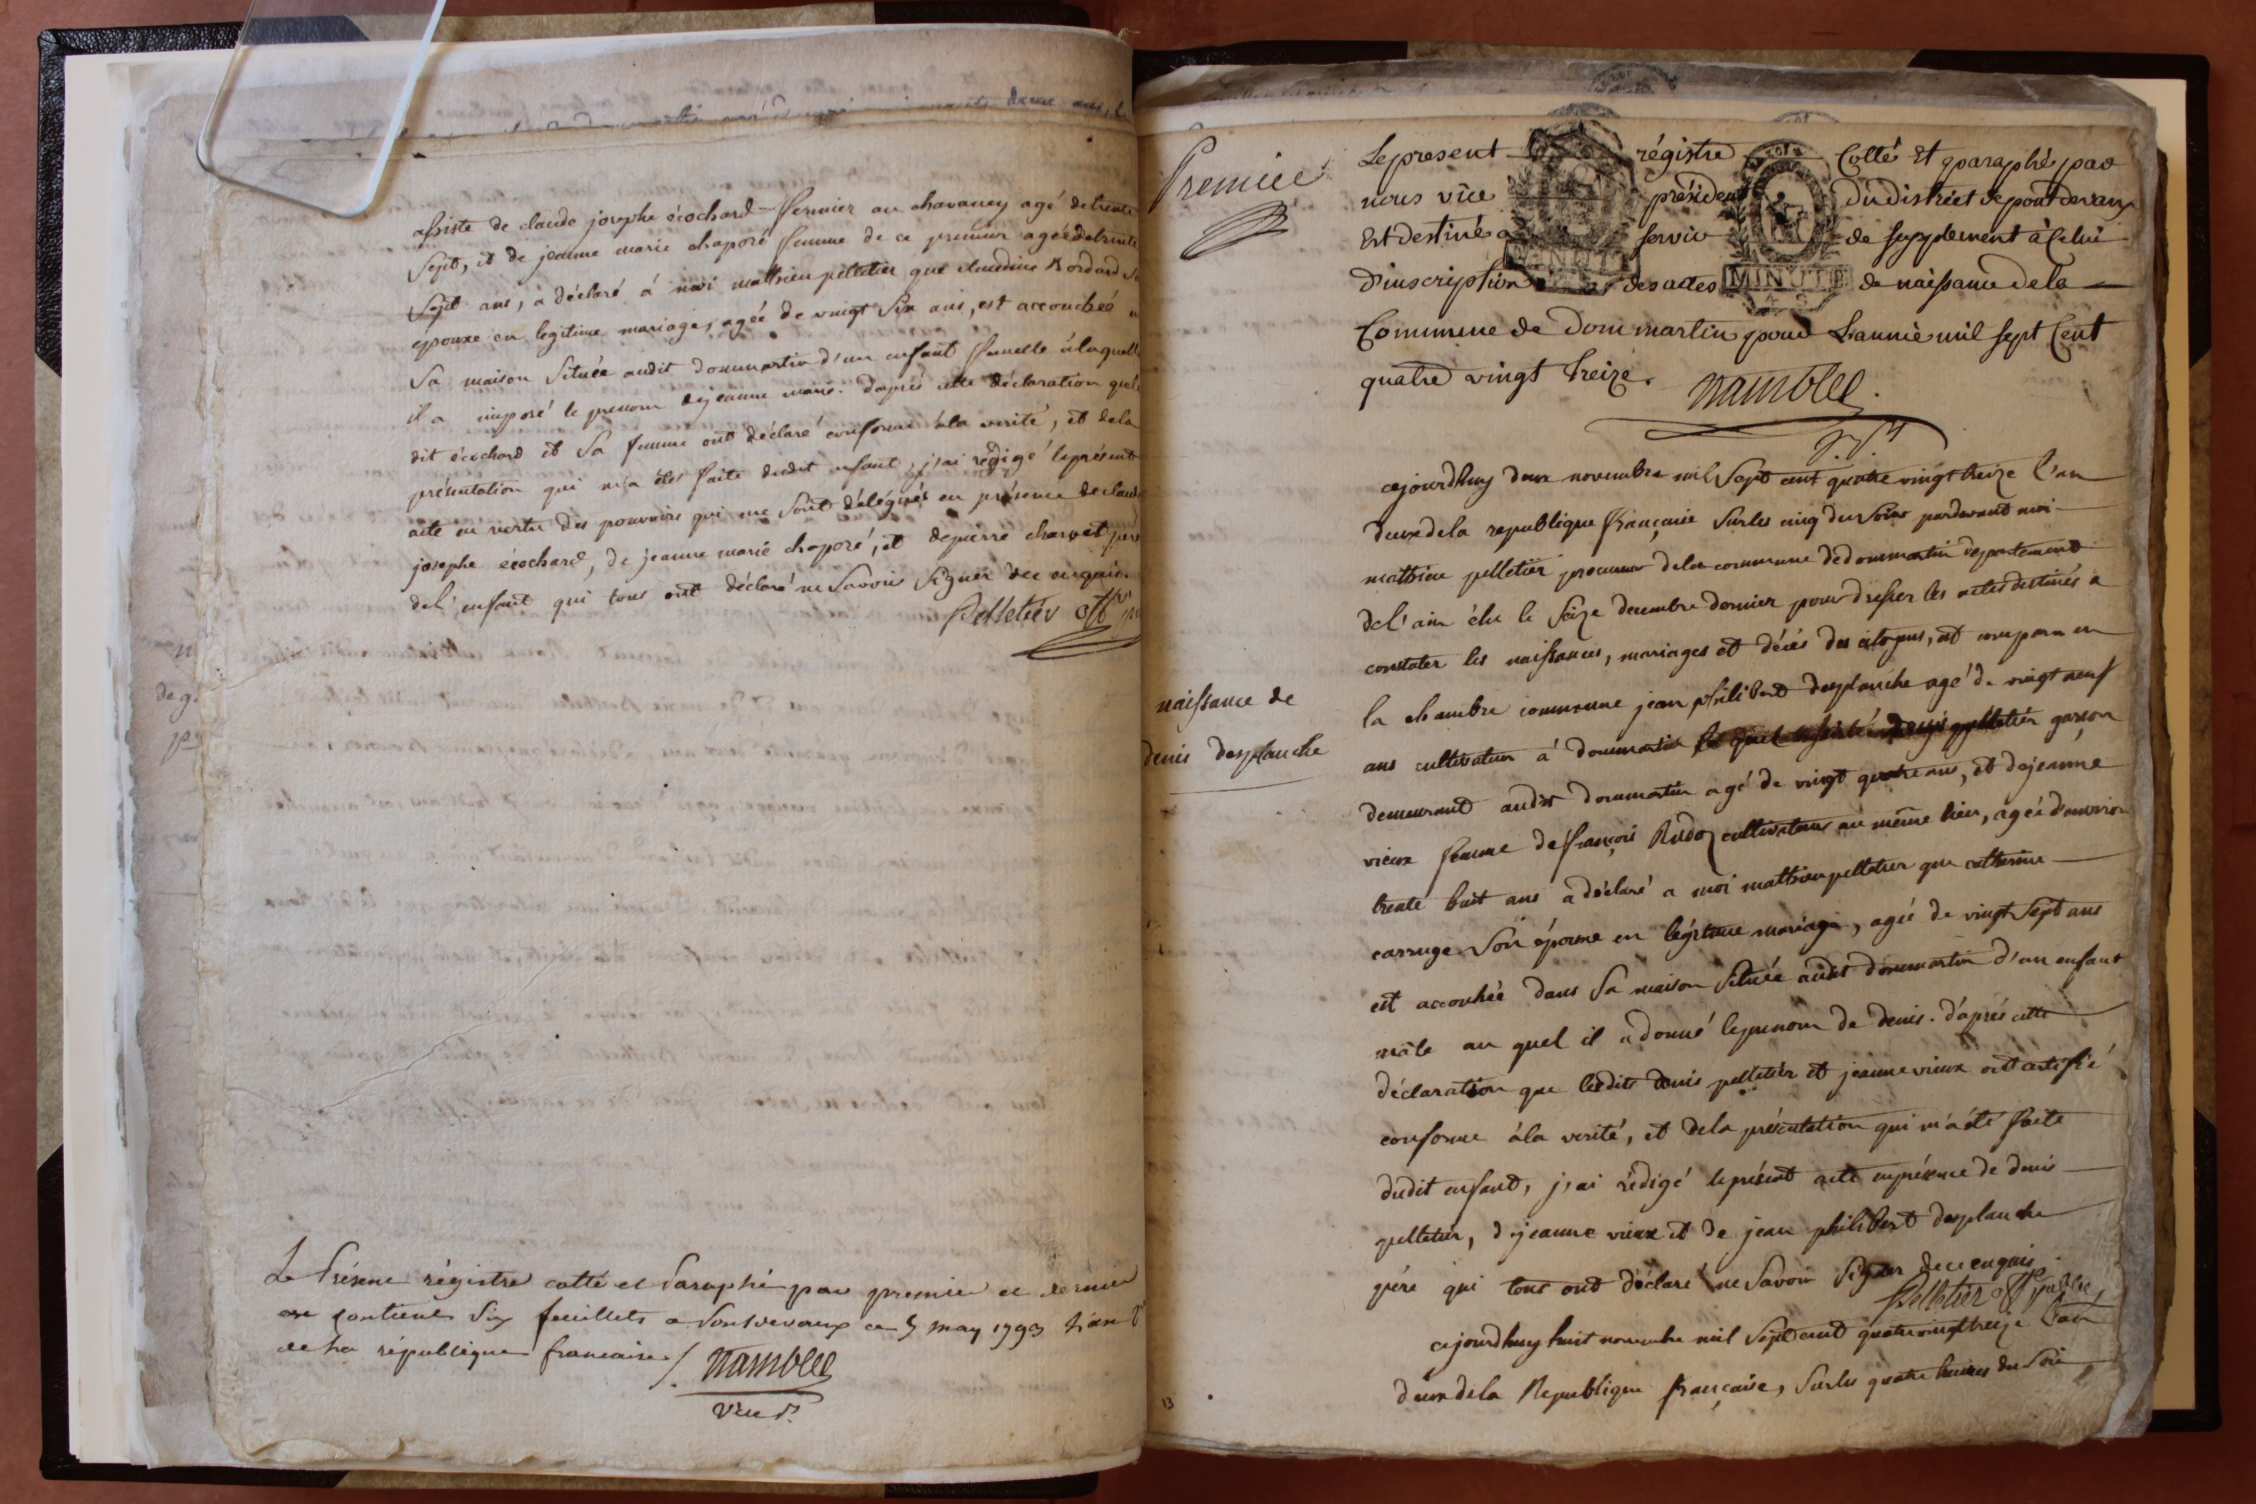 assisté de claude josephe écochard fermier au chavaney agé de trente
sept, et de jeanne marie chaporé femme de ce premier agée de trente
sept ans, a déclaré á moi mathieu pelletier que claudine
epouxe en legitime mariage, agée de vingt six ans, est accouchée
sa maison située audit dommartin d'un enfant femelle á laquelle
il a imposé le prenom de jeanne marie. d'aprés cette déclaration que le
dit écochard et sa femme ont déclaré conforme à la verité, et de la
présentation qui m'a été faite dudit enfant, j'ai rédigé le présent
acte en vertu des pouvoirs qui me sont délégués en présence de claude
josephe écochard, de jeanne marie chaporé, et de pierre charvet pere
de l'enfant qui tous ont déclaré ne savoir signer de ce enquis.
Pelletier
Le Présent régistre cotté et Paraphé par premier et dernier
contient six feuillets a Pontdevaux ce 5 may 1793 l'an 2
de la république francaise /. Namblee
Premier
Le present régistre Cotté Et paraphé par
nous vice président Du district de pont devaux
Est destiné a servir de supplement à Celui
D'inscription des actes MINUTE de naissance de la
Commune de Dommartin pour L'année mil sept Cent
quatre vingt treize. Namblee
cejourd'huy deux novembre mil sept cent quatre vingt treize l'an
deux de la republique française sur les cinq du soir pardevant moi
mathieu pelletier procureur de la commune de dommartin departement
de l'ain élu le seize decembre dernier pour dresser les actes destinés a
constater les naissances, mariages et décés des citoyens, est comparu en
naissance de
denis desplanche
la chambre commune jean philibert desplanche agé de vingt neuf
ans cultivateur à dommartin le quel assisté de denis pelletier garson
demeurant audit dommartin agé de vingt quatre ans, et de jeanne
vieux femme de françois Rudoz cultivateur au même lieu, agée d'environ
trente huit ans a déclaré a moi mathieu pelletier que catherine
carruge son épouse en légitime mariage, agée de vingt sept ans
est accouchée dans sa maison située audit dommartin d'un enfant
mâle au quel il a donné le prenom de denis. d'aprés cette
déclaration que lesdits denis pelletier et jeanne vieux ont certifié
conforme à la verité, et de la présentation qui m'a été faite
dudit enfant, j'ai rédigé le présent acte en présence de denis
pelletier, de jeanne vieux et de jean philibert desplanche
pére qui tous ont déclaré ne savoir signer de ce enquis.
Pelletier
cejourd'huy huit novembre mil sept cent quatre vingt treize l'an
deux de la Republique française, sur les quatre heures du soir
13